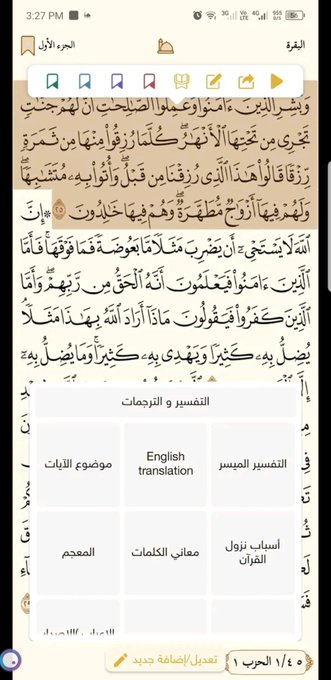 3:27 PM
الجزء الأول
البقرة
وَبَشِّرِ ٱلَّذِينَ ءَامَنُوا۟ وَعَمِلُوا۟ ٱلصَّـٰلِحَـٰتِ أَنَّ لَهُمْ جَنَّـٰتٍ
تَجْرِى مِن تَحْتِهَا ٱلْأَنْهَـٰرُ ۖ كُلَّمَا رُزِقُوا۟ مِنْهَا مِن ثَمَرَةٍ
رِّزْقًا ۙ قَالُوا۟ هَـٰذَا ٱلَّذِى رُزِقْنَا مِن قَبْلُ ۖ وَأُتُوا۟ بِهِۦ مُتَشَـٰبِهًا ۖ
وَلَهُمْ فِيهَآ أَزْوَٰجٌ مُّطَهَّرَةٌ ۖ وَهُمْ فِيهَا خَـٰلِدُونَ ٢٥ ۞ إِنَّ
ٱللَّهَ لَا يَسْتَحْىِۦٓ أَن يَضْرِبَ مَثَلًا مَّا بَعُوضَةً فَمَا فَوْقَهَا ۚ فَأَمَّا
ٱلَّذِينَ ءَامَنُوا۟ فَيَعْلَمُونَ أَنَّهُ ٱلْحَقُّ مِن رَّبِّهِمْ ۖ وَأَمَّا
ٱلَّذِينَ كَفَرُوا۟ فَيَقُولُونَ مَاذَآ أَرَادَ ٱللَّهُ بِهَـٰذَا مَثَلًا ۘ
يُضِلُّ بِهِۦ كَثِيرًا وَيَهْدِى بِهِۦ كَثِيرًا ۚ وَمَا يُضِلُّ بِهِۦٓ
التفسير و الترجمات
التفسير الميسر
English translation
موضوع الآيات
أسباب نزول القرآن
معاني الكلمات
المعجم
تعديل/إضافة جديد
١/٤٥ الحزب ١